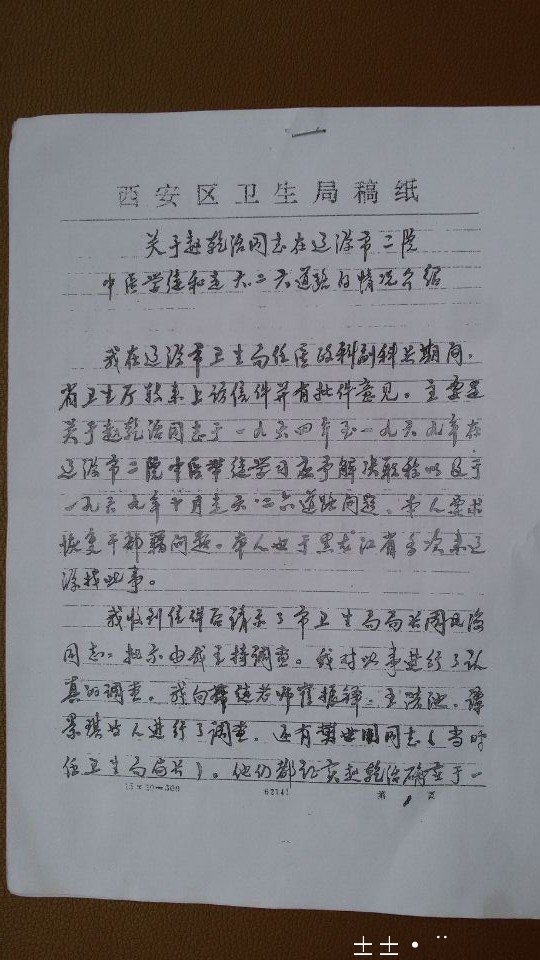 西安区卫生局稿纸
关于赵乾治同志在辽源市二院
中医学徒和走六·二六道路的情况介绍
我在辽源市卫生局任医政科副科长期间,
省卫生厅转来上访信件并有批件意见。主要是
关于赵乾治同志于一九六四年至一九六九年在
辽源市二院中医带徒学习应予解决职称以及于
一九六九年十月走六·二六道路问题,本人要求
恢复干部籍问题。本人也于黑龙江省多次来辽
源找此事。
我收到信件后请示了市卫生局局长周
同志,批示由我主持调查。我对此事进行了认
真的调查。我向带徒老师崔振铎,王
景琪等人进行了调查,还有樊世国同志(当时
任卫生局局长)。他们都证实赵乾治确在于一
15×20=300 62141 第 1 页
士士·¨